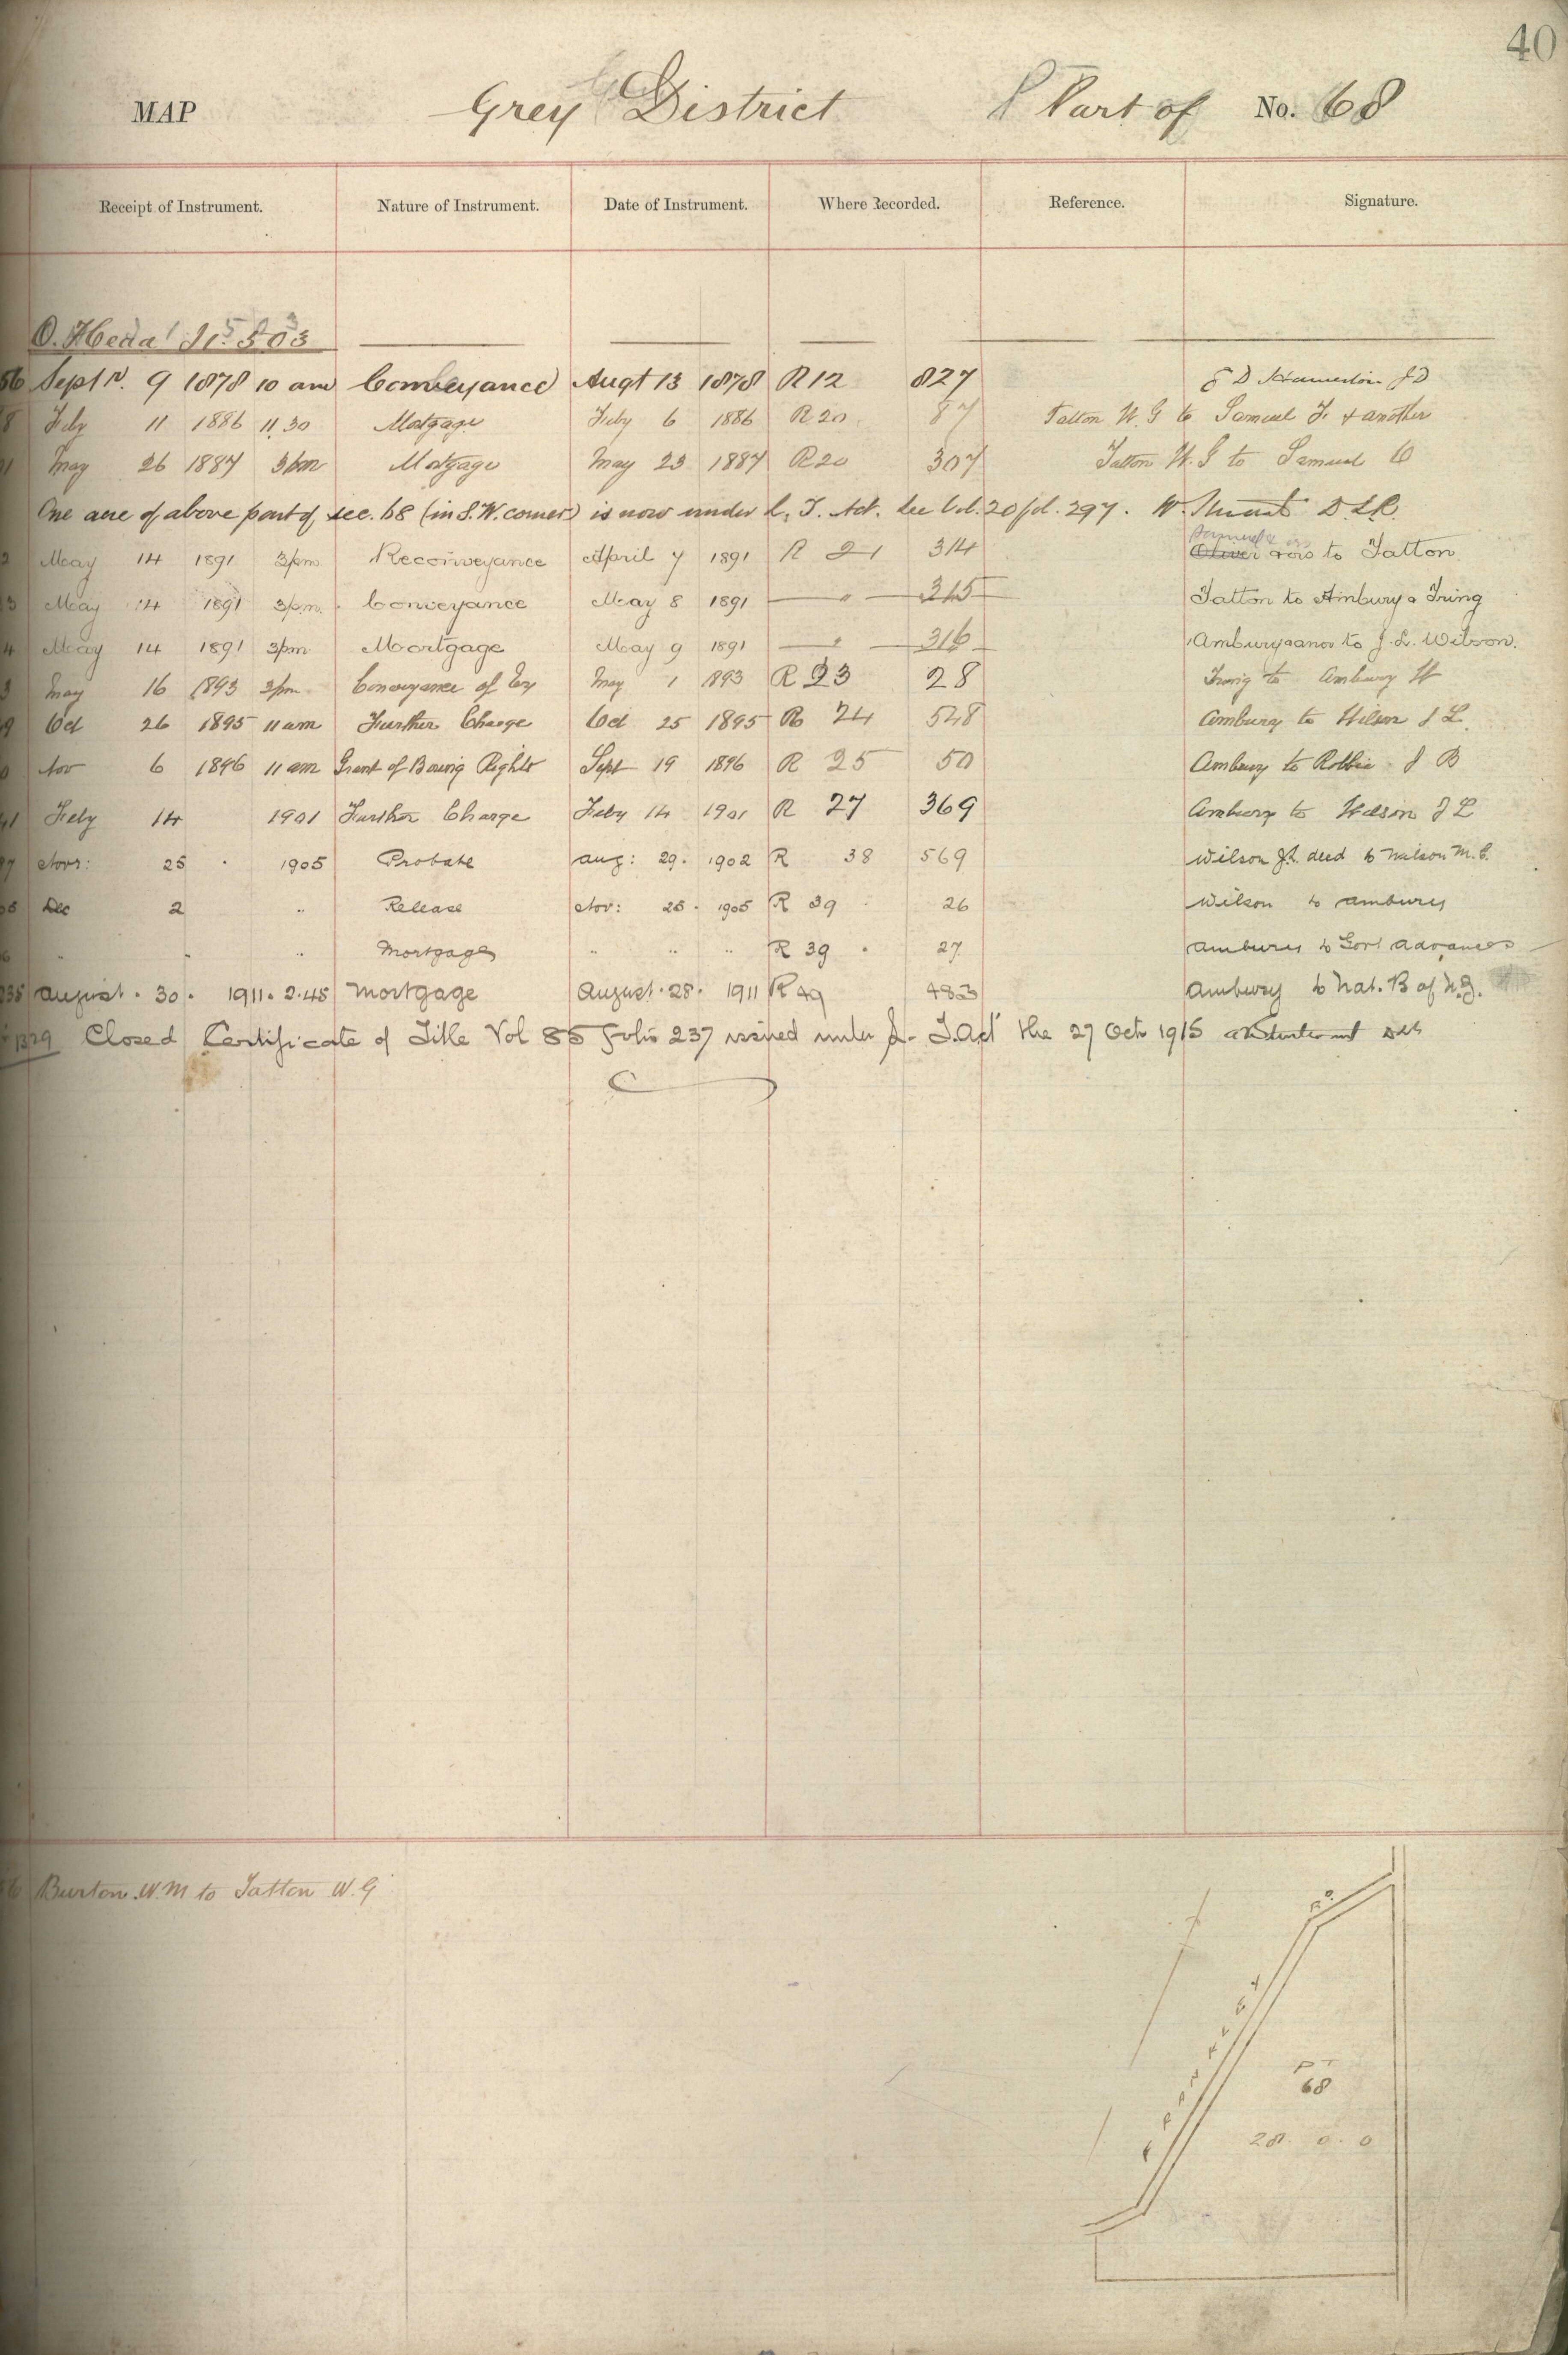 40
MAP Grey District Part of No. 68
Receipt of Instrument. Nature of Instrument. Date of Instrument. Where Recorded. Reference. Signature.
56 Septr. 9 1878 10 am Conveyance Augt 13 1878 R12 827
8 Feby 11 1886 11.30 Mortgage Feby 6 1886 R 20 87 Tatton W. G to Samuel & another
1 May 26 1887 3pm Mortgage May 23 1887 R20 307 Tatton W. G to Samuel O
One acre of above part of sec. 68 (in S.W. corner) is now under L. T. Act. See Vol. 20 fol. 297. D.L.R.
2 May 14 1891 3pm Reconveyance April 7 1891 R 21 314 Samuel & ors to Tatton
3 May 14 1891 3pm Conveyance May 8 1891 " 315 Tatton to Ambury & Tring
4 May 14 1891 3pm Mortgage May 9 1891 " 316 Ambury & anor to J. L. Wilson.
May 16 1893 3pm Conveyance of Eq May 1 1893 R 23 28 to Ambury W
9 Oct 26 1895 11 am Further Charge Oct 25 1895 R 24 548 Ambury to Wilson J L.
Nov 6 1896 11 am Grant of Boring Rights Sept 19 1896 R 25 50 Ambury to Robbie J B
41 Feby 14 1901 Further Charge Feby 14 1901 R 27 369 Ambury to Wilson J L
7 Novr: 25 1905 Probate Aug: 29. 1902 R 38 569 Wilson J.L. decd to Wilson M. C.
Dec 2 " Release Nov: 25. 1905 R 39 26 Wilson to Ambury
" " " Mortgage " " " R 39 27 Ambury to Govt Advances
235 August. 30. 1911. 2.45 Mortgage August. 28. 1911 R 49 483 Ambury to Nat. B of N.Z.
1329 Closed Certificate of Title Vol 85 folio 237 issued under L. T. Act the 27 Oct 1915
56 Burton W. M to Tatton W. G
PT
68
28. 0. 0